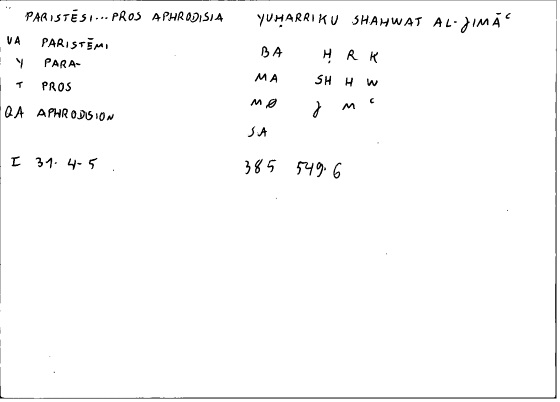 PARISTĒSI...PROS APHRODISIA YUḤARRIKU SHAHWAT AL-JIMĀᶜ
VA PARISTĒMI BA Ḥ R K
Y PARA- MA SH H W
T PROS MØ J M ᶜ
QA APHRODISION SA
I 31.4-5 385 549.6